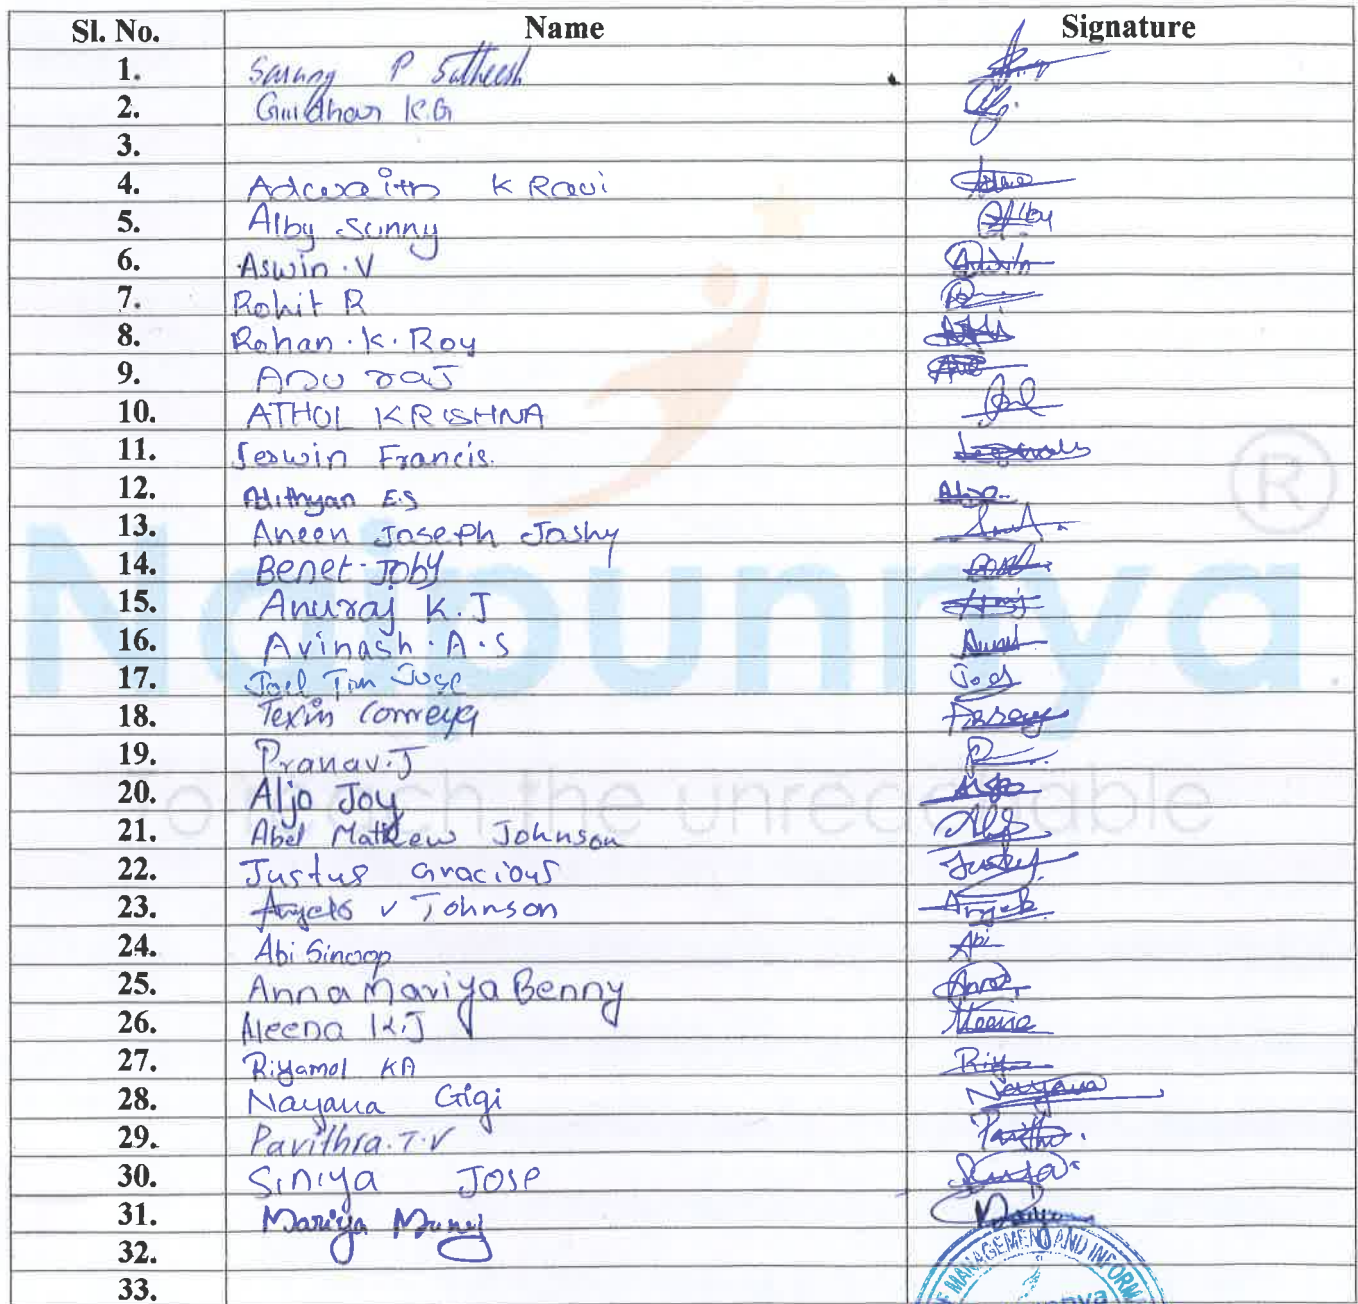 Sl. No. Name Signature
1. Sarang P Sutheesh
2. K.G
3.
4. Adwaith K Ravi
5. Alby Sunny Alby
6. Aswin . V
7. Rohit R
8. Rohan . K . Roy
9. Anu raj
10. ATHUL KRISHNA
11. Jeswin Francis.
12. Adithyan E.S
13. Aneen Joseph Jashy
14. Benet Joby
15. Anuraj K.J
16. Avinash . A . S
17. Joel Tim Jose Joel
18. Texin Correya
19. Pranav.J
20. Aljo Joy
21. Abel Mathew Johnson
22. Justus Gracious
23. Angelo v Johnson Angelo
24. Abi Sinoop Abi
25. Anna Mariya Benny
26. Meena K.J Meena
27. Riyamol KA Riya
28. Nayana Gigi Nayana
29. Pavithra.T.V
30. Siniya Jose
31. Mariya
32.
33.
Naipunnya ®
To reach the unreachable
OF MANAGEMENT AND INFORM